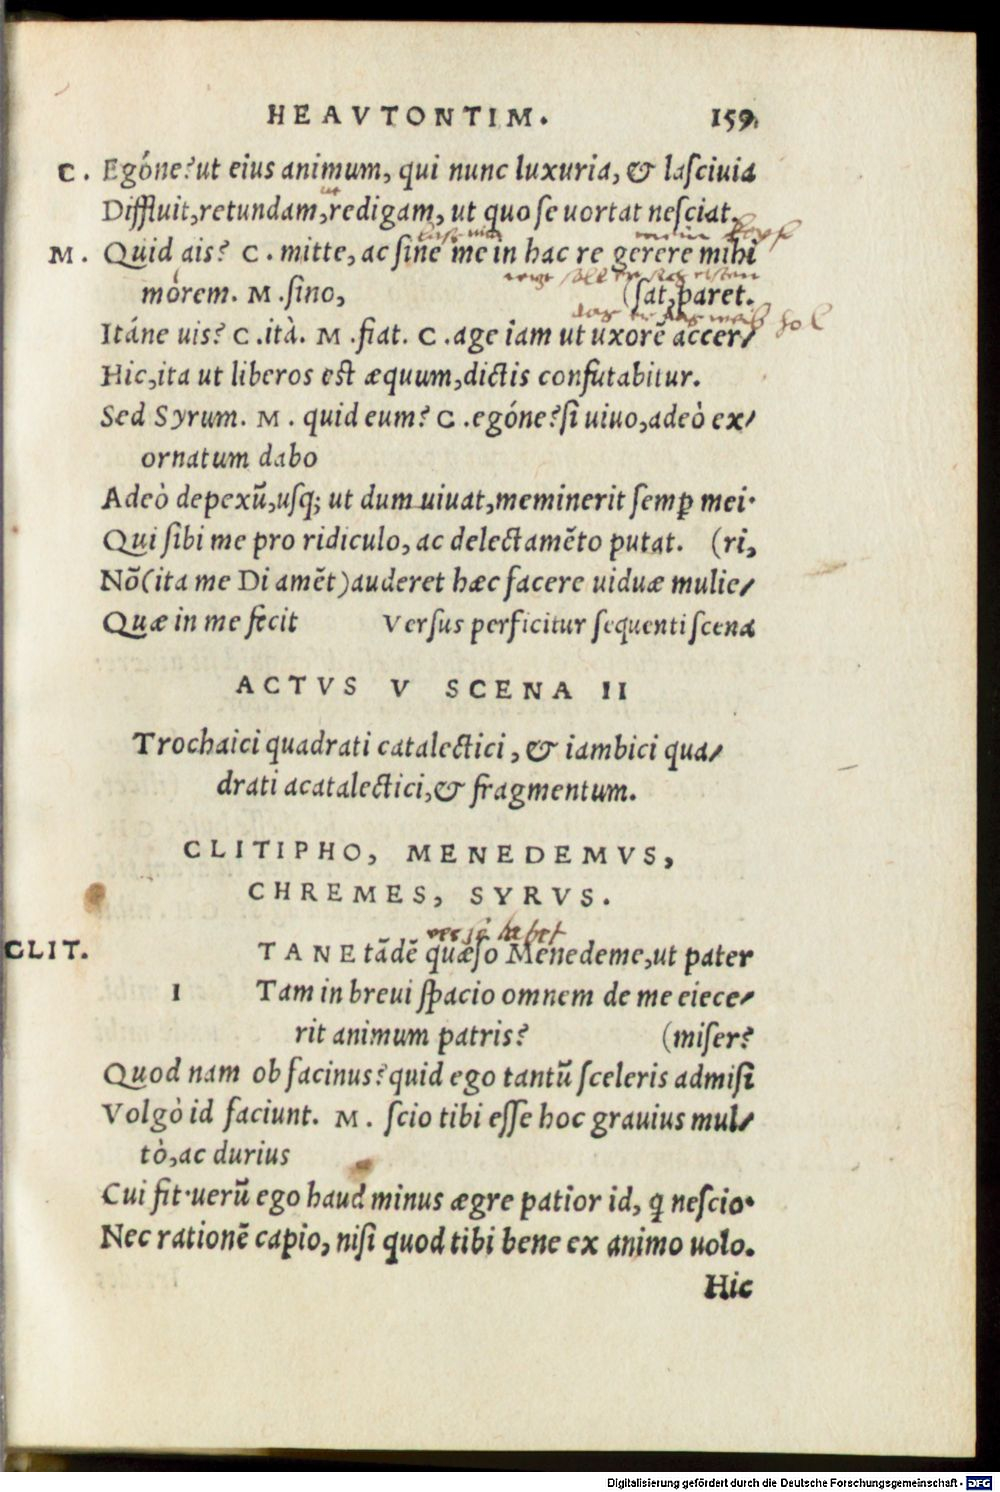 HEAVTONTIM. 159.
C. Egóne? ut eius animum, qui nunc luxuria, & laſciuia
Diffluit, retundam, redigam, ut quo ſe uortat neſciat.
M. Quid ais? C. mitte, ac ſine me in hac re gerere mihi
mórem. M. ſino, (ſat, paret.
Itáne uis? C. ità. M. fiat. C. age iam ut uxorē accer/
Hic, ita ut liberos eſt æquum, dictis confutabitur.
Sed Syrum. M. quid eum? C. egóne? ſi uiuo, adeò ex/
ornatum dabo
Adeò depexū, uſq; ut dum uiuat, meminerit ſemꝑ mei.
Qui ſibi me pro ridiculo, ac delectamēto putat. (ri,
Nō (ita me Di amēt) auderet hæc facere uiduæ mulie/
Quæ in me fecit Verſus perficitur ſequenti ſcena
ACTVS V SCENA II
Trochaici quadrati catalectici, & iambici qua/
drati acatalectici, & fragmentum.
CLITIPHO, MENEDEMVS,
CHREMES, SYRVS.
CLIT. TANE tādē quæſo Menedeme, ut pater
I Tam in breui ſpacio omnem de me eiece/
rit animum patris? (miſer?
Quod nam ob facinus? quid ego tantū ſceleris admiſi
Volgò id faciunt. M. ſcio tibi eſſe hoc grauius mul/
tò, ac durius
Cui fit. uerū ego haud minus ægre patior id, ꝗ neſcio.
Nec rationē capio, niſi quod tibi bene ex animo uolo.
Hic
Digitalisierung gefördert durch die Deutsche Forschungsgemeinschaft - DFG